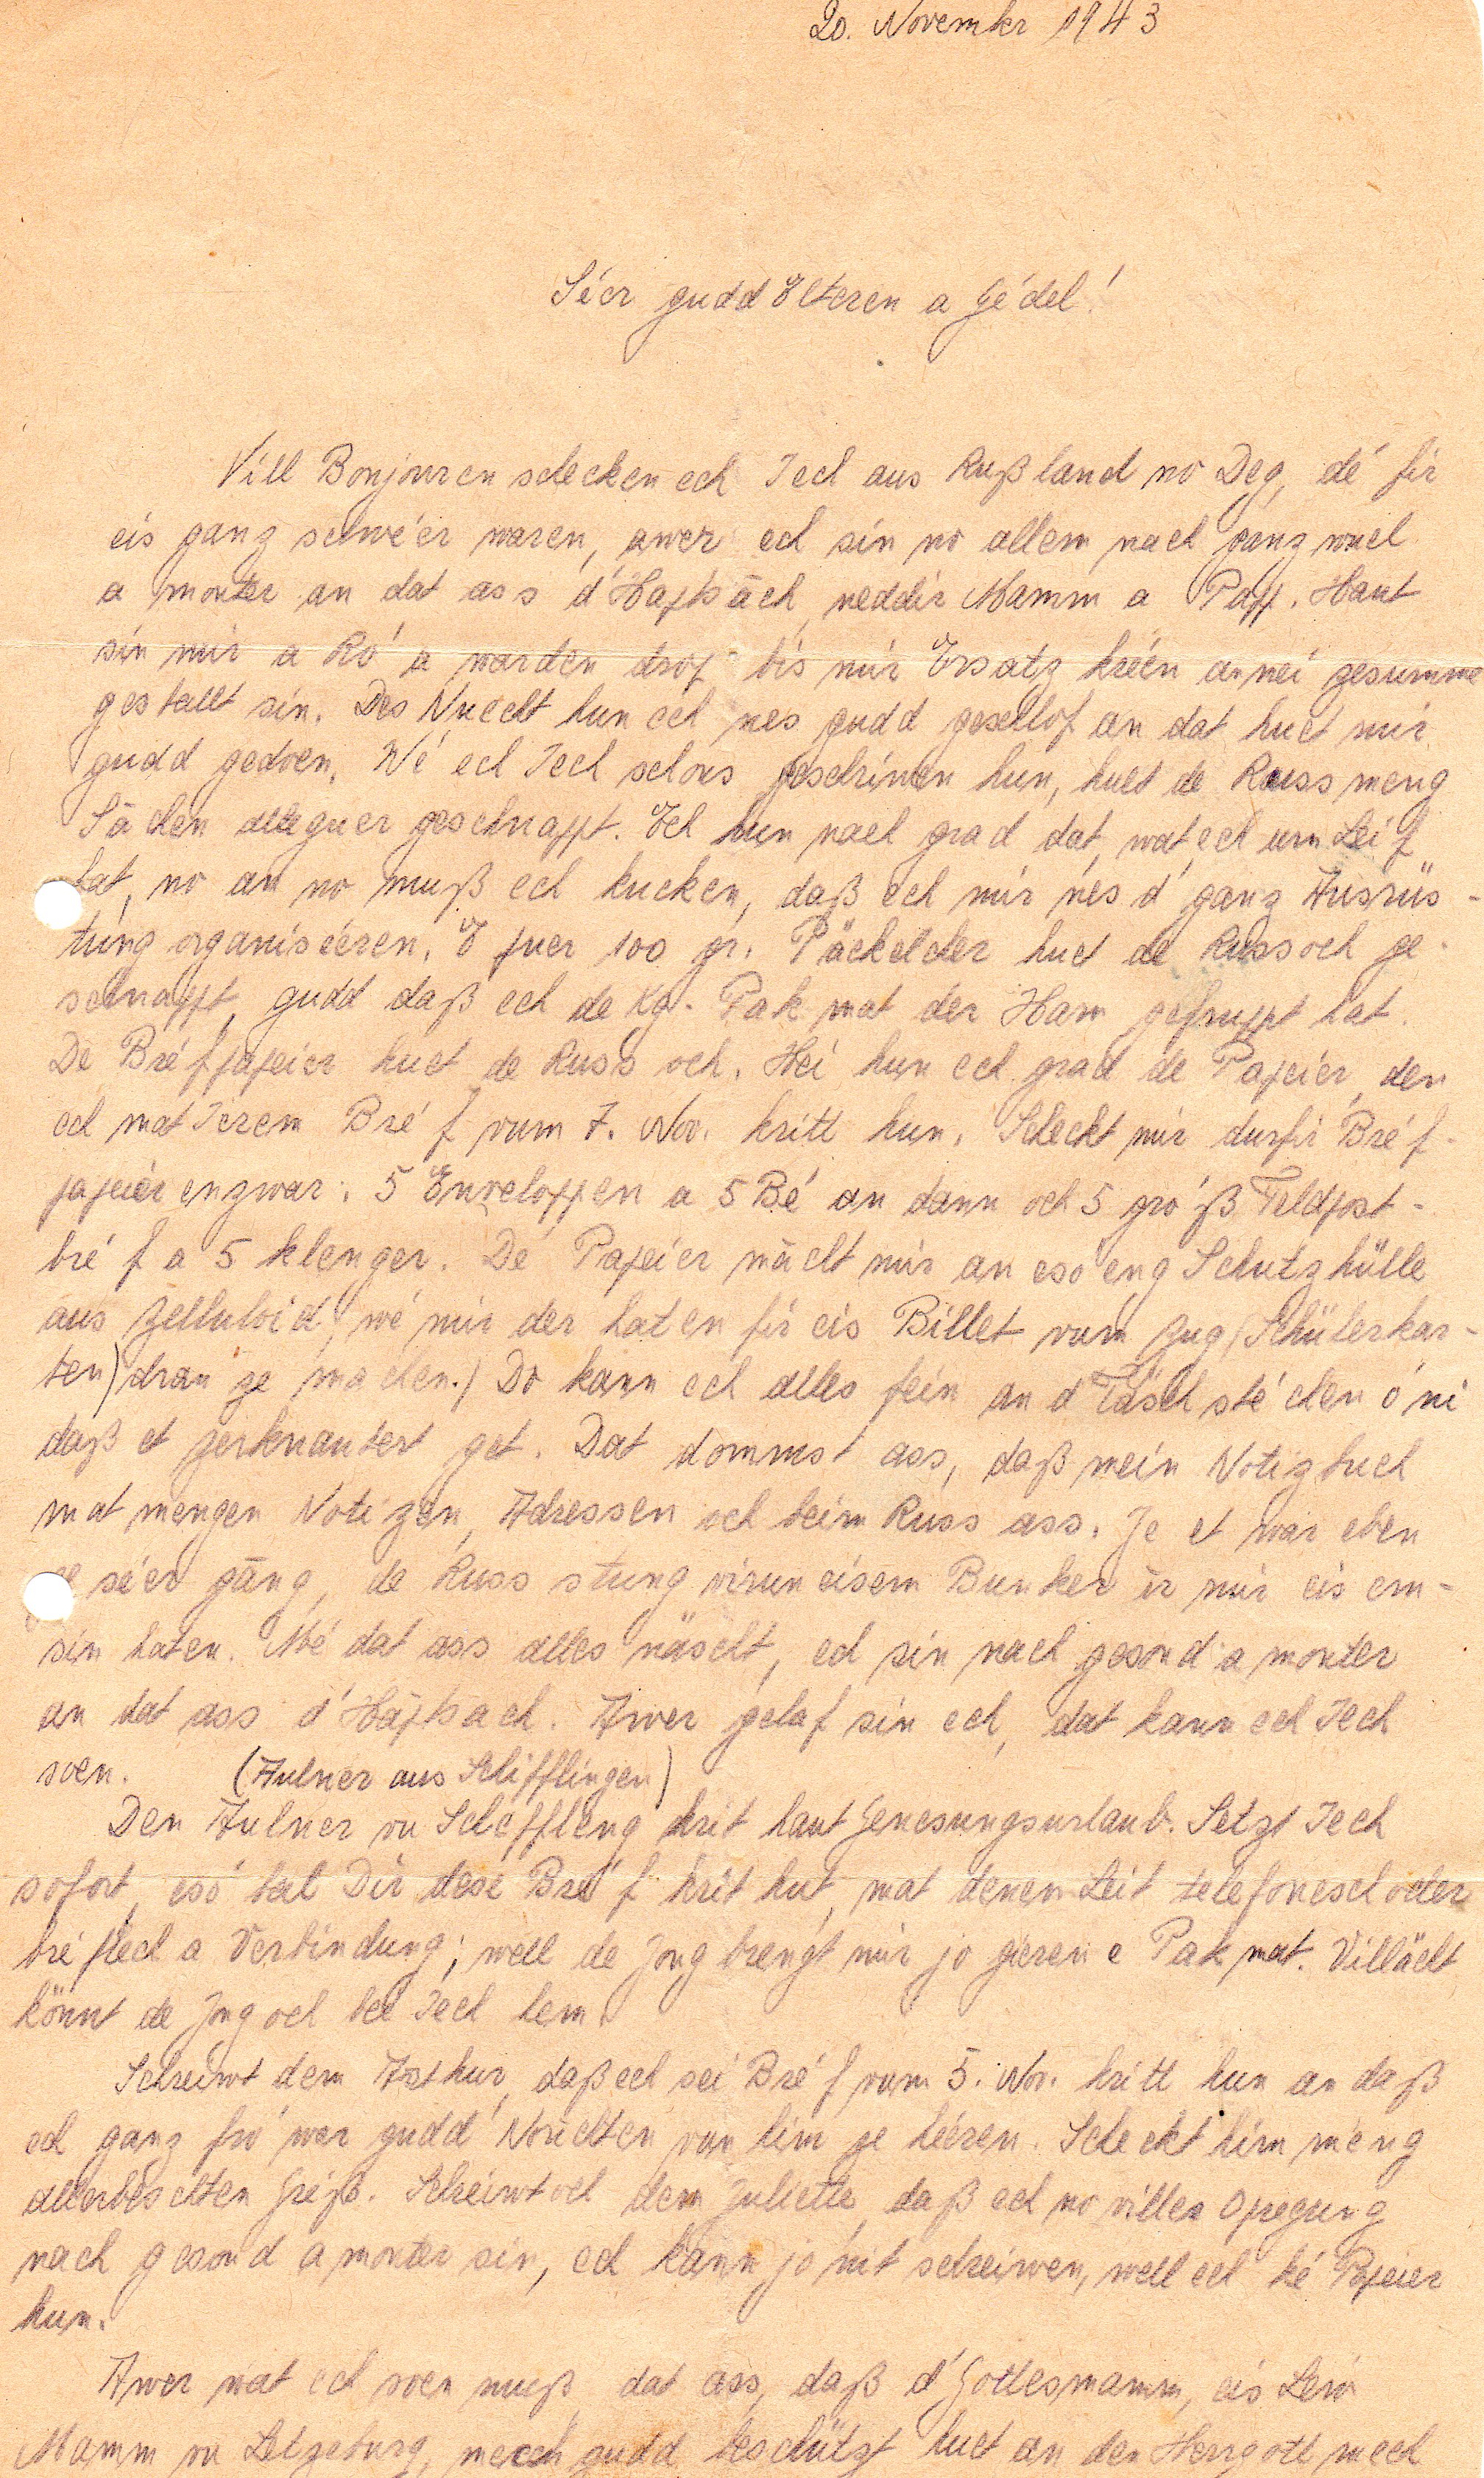 20. November 1943
Séer gudd Elteren a Gédel!
Vill Bonjouren schecken ech Iech aus Rußland no Deg, dé fir
eis ganz schwéer waren, awer ech sin no allem nach ganz wuel
a monter an dat ass d'Haptsâch, neddir Mamm a Papp. Haut
sin mir a Ró a warden drop bis mir Ersatz kréien an nei gesumme
gestallt sin. Des Nuecht hun ech nes gudd geschlof an dat huet mir
gudd gedoen. Wé ech Iech schons geschriwen hun, huet de Russ meng
Sâchen alleguer geschnappt. Ech hun nach grad dat, wat ech um Leif
hat, no an no muß ech kucken, daß ech mir nes d'ganz Ausrüs-
tung organiséeren. E puer 100 gr. Päckelcher huet de Russ och ge-
schnappt, gudd daß ech de Kg-Pak mat der Ham gefruppt hat.
De Bréfpapeier huet de Russ och. Hei hun ech grad de Papeier, den
ech mat Ierem Bréf vum 7. Nov. kritt hun. Scheckt mir durfir Bréf-
papeier enzwar: 5 Enveloppen a 5 Bé an dann och 5 gróß Feldpost-
bréf a 5 klenger. Dé Papeier mâcht mir an esó eng Schutzhülle
aus Zelluloid, wé mir der haten fir eis Billet vum Zug (Schülerkar-
ten) dran ze machen.) Do kann ech alles fein an d'Täsch stéchen óni
daß et zerknautert get. Dat dommst ass, daß mein Notizbuch
mat mengen Notizen, Adressen och beim Russ ass. Je et war eben
ze séer gâng, de Russ stung virun eisem Bunker ir mir eis em-
sin haten. Mé dat ass alles näscht, ech sin nach gesond a monter
an dat ass d'Hâptsach. Awer gelaf sin ech, dat kann ech Iech
soen. (Aulner aus Schifflingen)
Den Aulner vu Scheffleng krit haut Genesungsurlaub. Setzt Iech
sofort, esó bal Dir dese Bréf krit hut, mat denen Leit telefonesch oder
bréflech a Verbindung; well de Jong brengt mir jo gieren e Pak mat. Villächt
könnt de Jong och bei Iech hem.
Schreiwt dem Arthur, daß ech sei Bréf vum 5. Nov. kritt hun an daß
ech ganz fró war gudd Noriichten vun him ze héieren. Scheckt him meng
allerbeschten Gréiß. Schreiwt och dem Juliette, daß ech no viller Opregung
nach gesond a monter sin, ech kann jo nit schreiwen, well ech ké Papeier
hun.
Awer wat ech soen muß, dat ass, daß d'Gottesmamm, eis Léiw
Mamm vu Letzeburg, mech gudd beschützt huet an den Herrgott mech